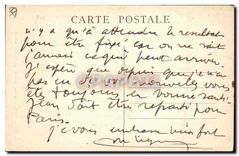 CARTE POSTALE
n'y a qu'à attendre le résultat
pour être fixé, car on ne sait
jamais ce qui peut arriver.
J'espère que depuis que je n'ai
pas eu de vos nouvelles vous
êtes toujours en bonne santé
Jean doit être reparti pour
Paris.
je vous embrasse bien fort